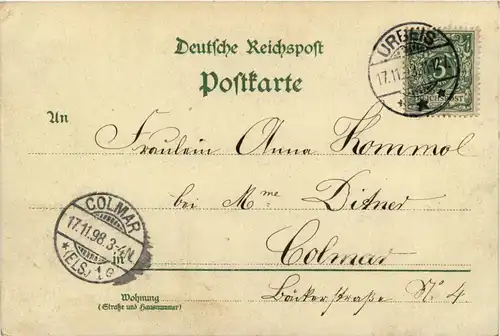 Deutsche Reichspost
Postkarte
URBEIS
17.11.98.
An
Fräulein Anna Kommol
bei Mme Ditner
COLMAR
17.11.98. 3-4N.
(ELS.)
in
Colmar
Wohnung
(Straße und Hausnummer)
Bäckerstraße No 4